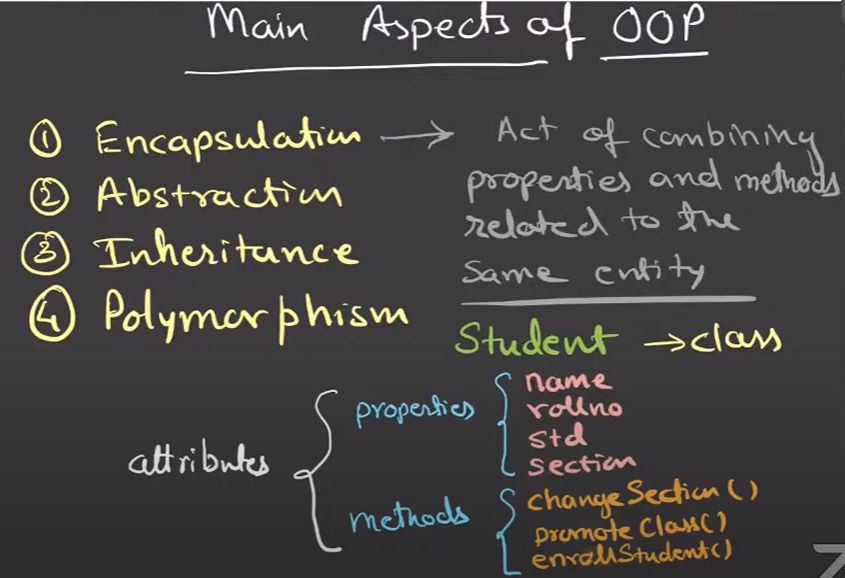 Main Aspects of OOP
① Encapsulation → Act of combining
properties and methods
related to the
same entity
② Abstraction
③ Inheritance
④ Polymorphism
Student → class
attributes
properties
name
rollno
std
section
methods
changeSection()
promoteClass()
enrollStudent()